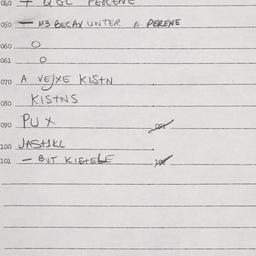 040 + Q GL PERENE
050 — M3 BECAY UNTER A PERENE
060 O
061 O
070 A VEJXE KISTN
080 KISTNS
090 PU X
100 JASTIKL
101 — BUT KISTELE